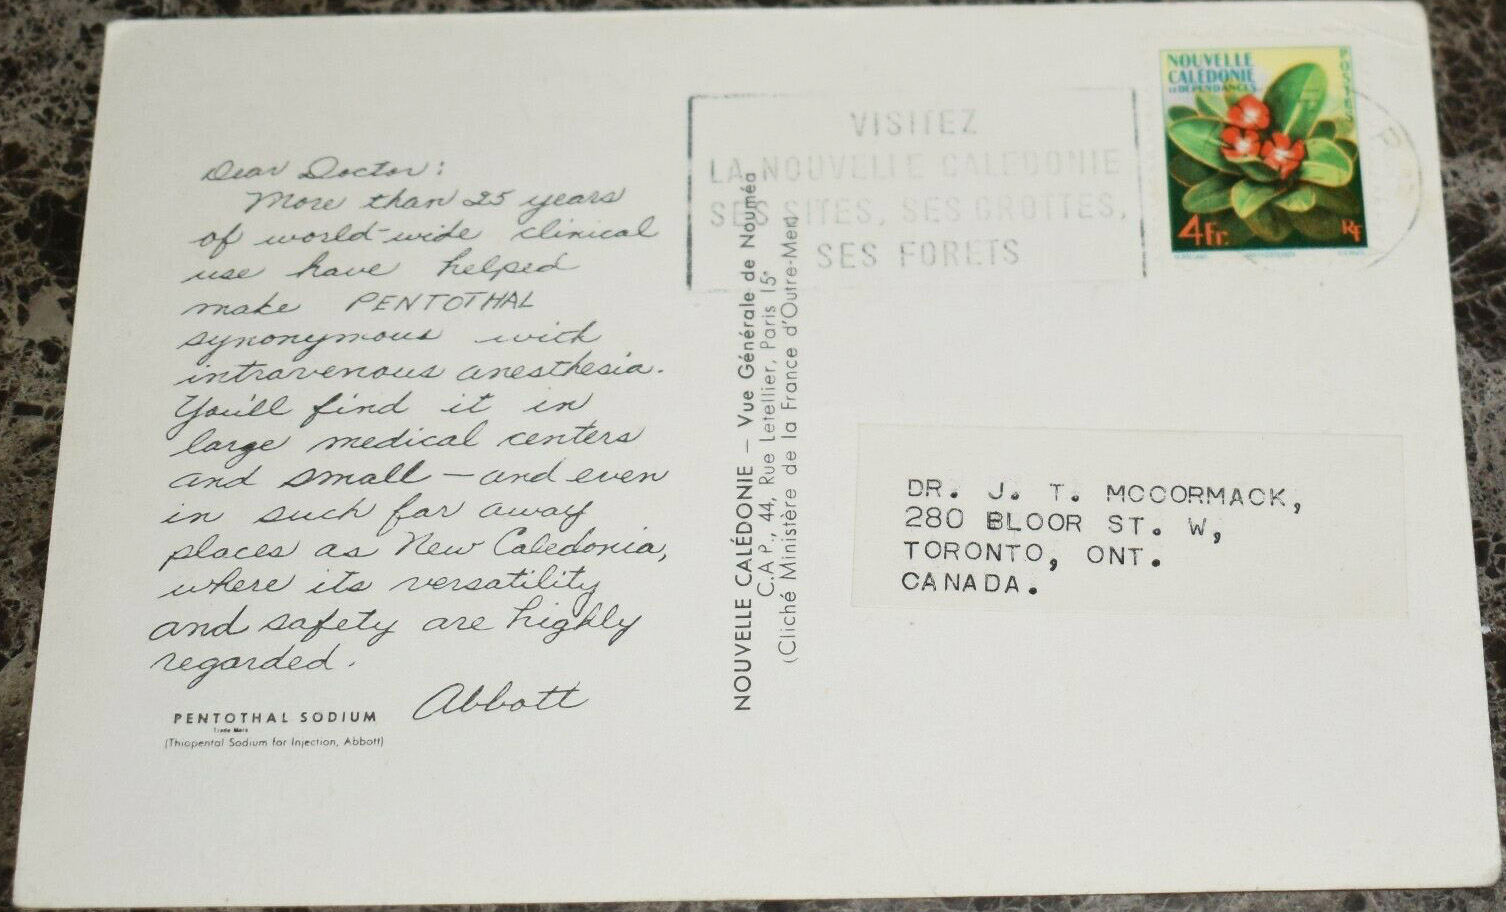 Dear Doctor:
More than 25 years
of world-wide clinical
use have helped
make PENTOTHAL
synonymous with
intravenous anesthesia.
You'll find it in
large medical centers
and small — and even
in such far away
places as New Caledonia,
where its versatility
and safety are highly
regarded.
Abbott
PENTOTHAL SODIUM
Trade Mark
(Thiopental Sodium for Injection, Abbott)
NOUVELLE CALÉDONIE — Vue Générale de Nouméa
C.A.P., 44, Rue Letellier, Paris 15e
(Cliché Ministère de la France d'Outre-Mer)
VISITEZ
LA NOUVELLE CALEDONIE
SES SITES, SES GROTTES,
SES FORETS
NOUVELLE
CALÉDONIE
ET DÉPENDANCES
POSTES
4Fr.
RF
DR. J. T. MCCORMACK,
280 BLOOR ST. W,
TORONTO, ONT.
CANADA.